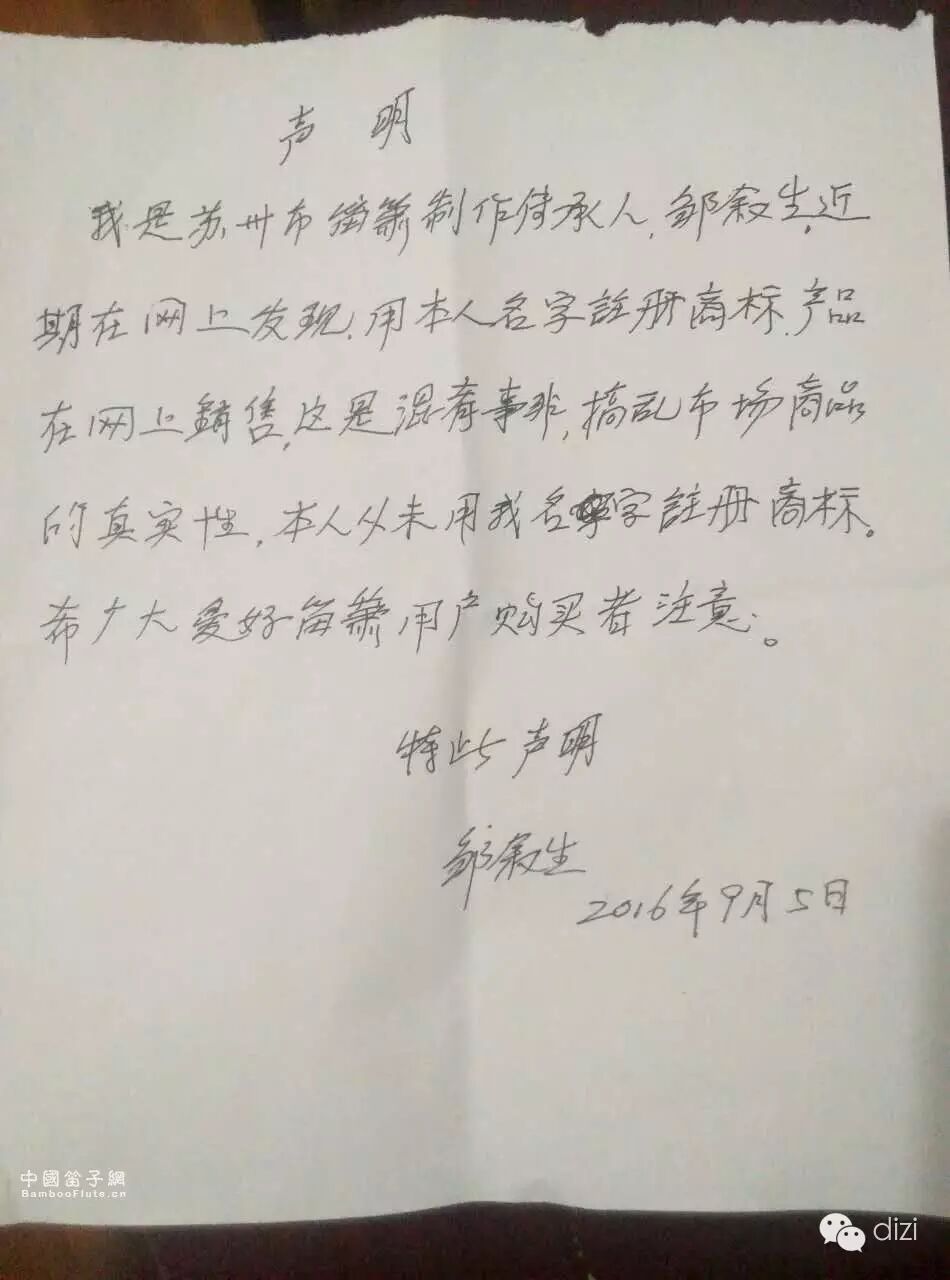 声 明
我是苏州市笛箫制作传承人,邹叙生,近
期在网上发现,用本人名字註册商标.产品
在网上銷售,这是混肴事非,搞乱市场商品
的真实性,本人从未用我名字註册商标。
希广大爱好笛箫用户购买者注意。
特此声明
邹叙生
2016年9月5日
中國笛子網
BambooFlute.cn
dizi